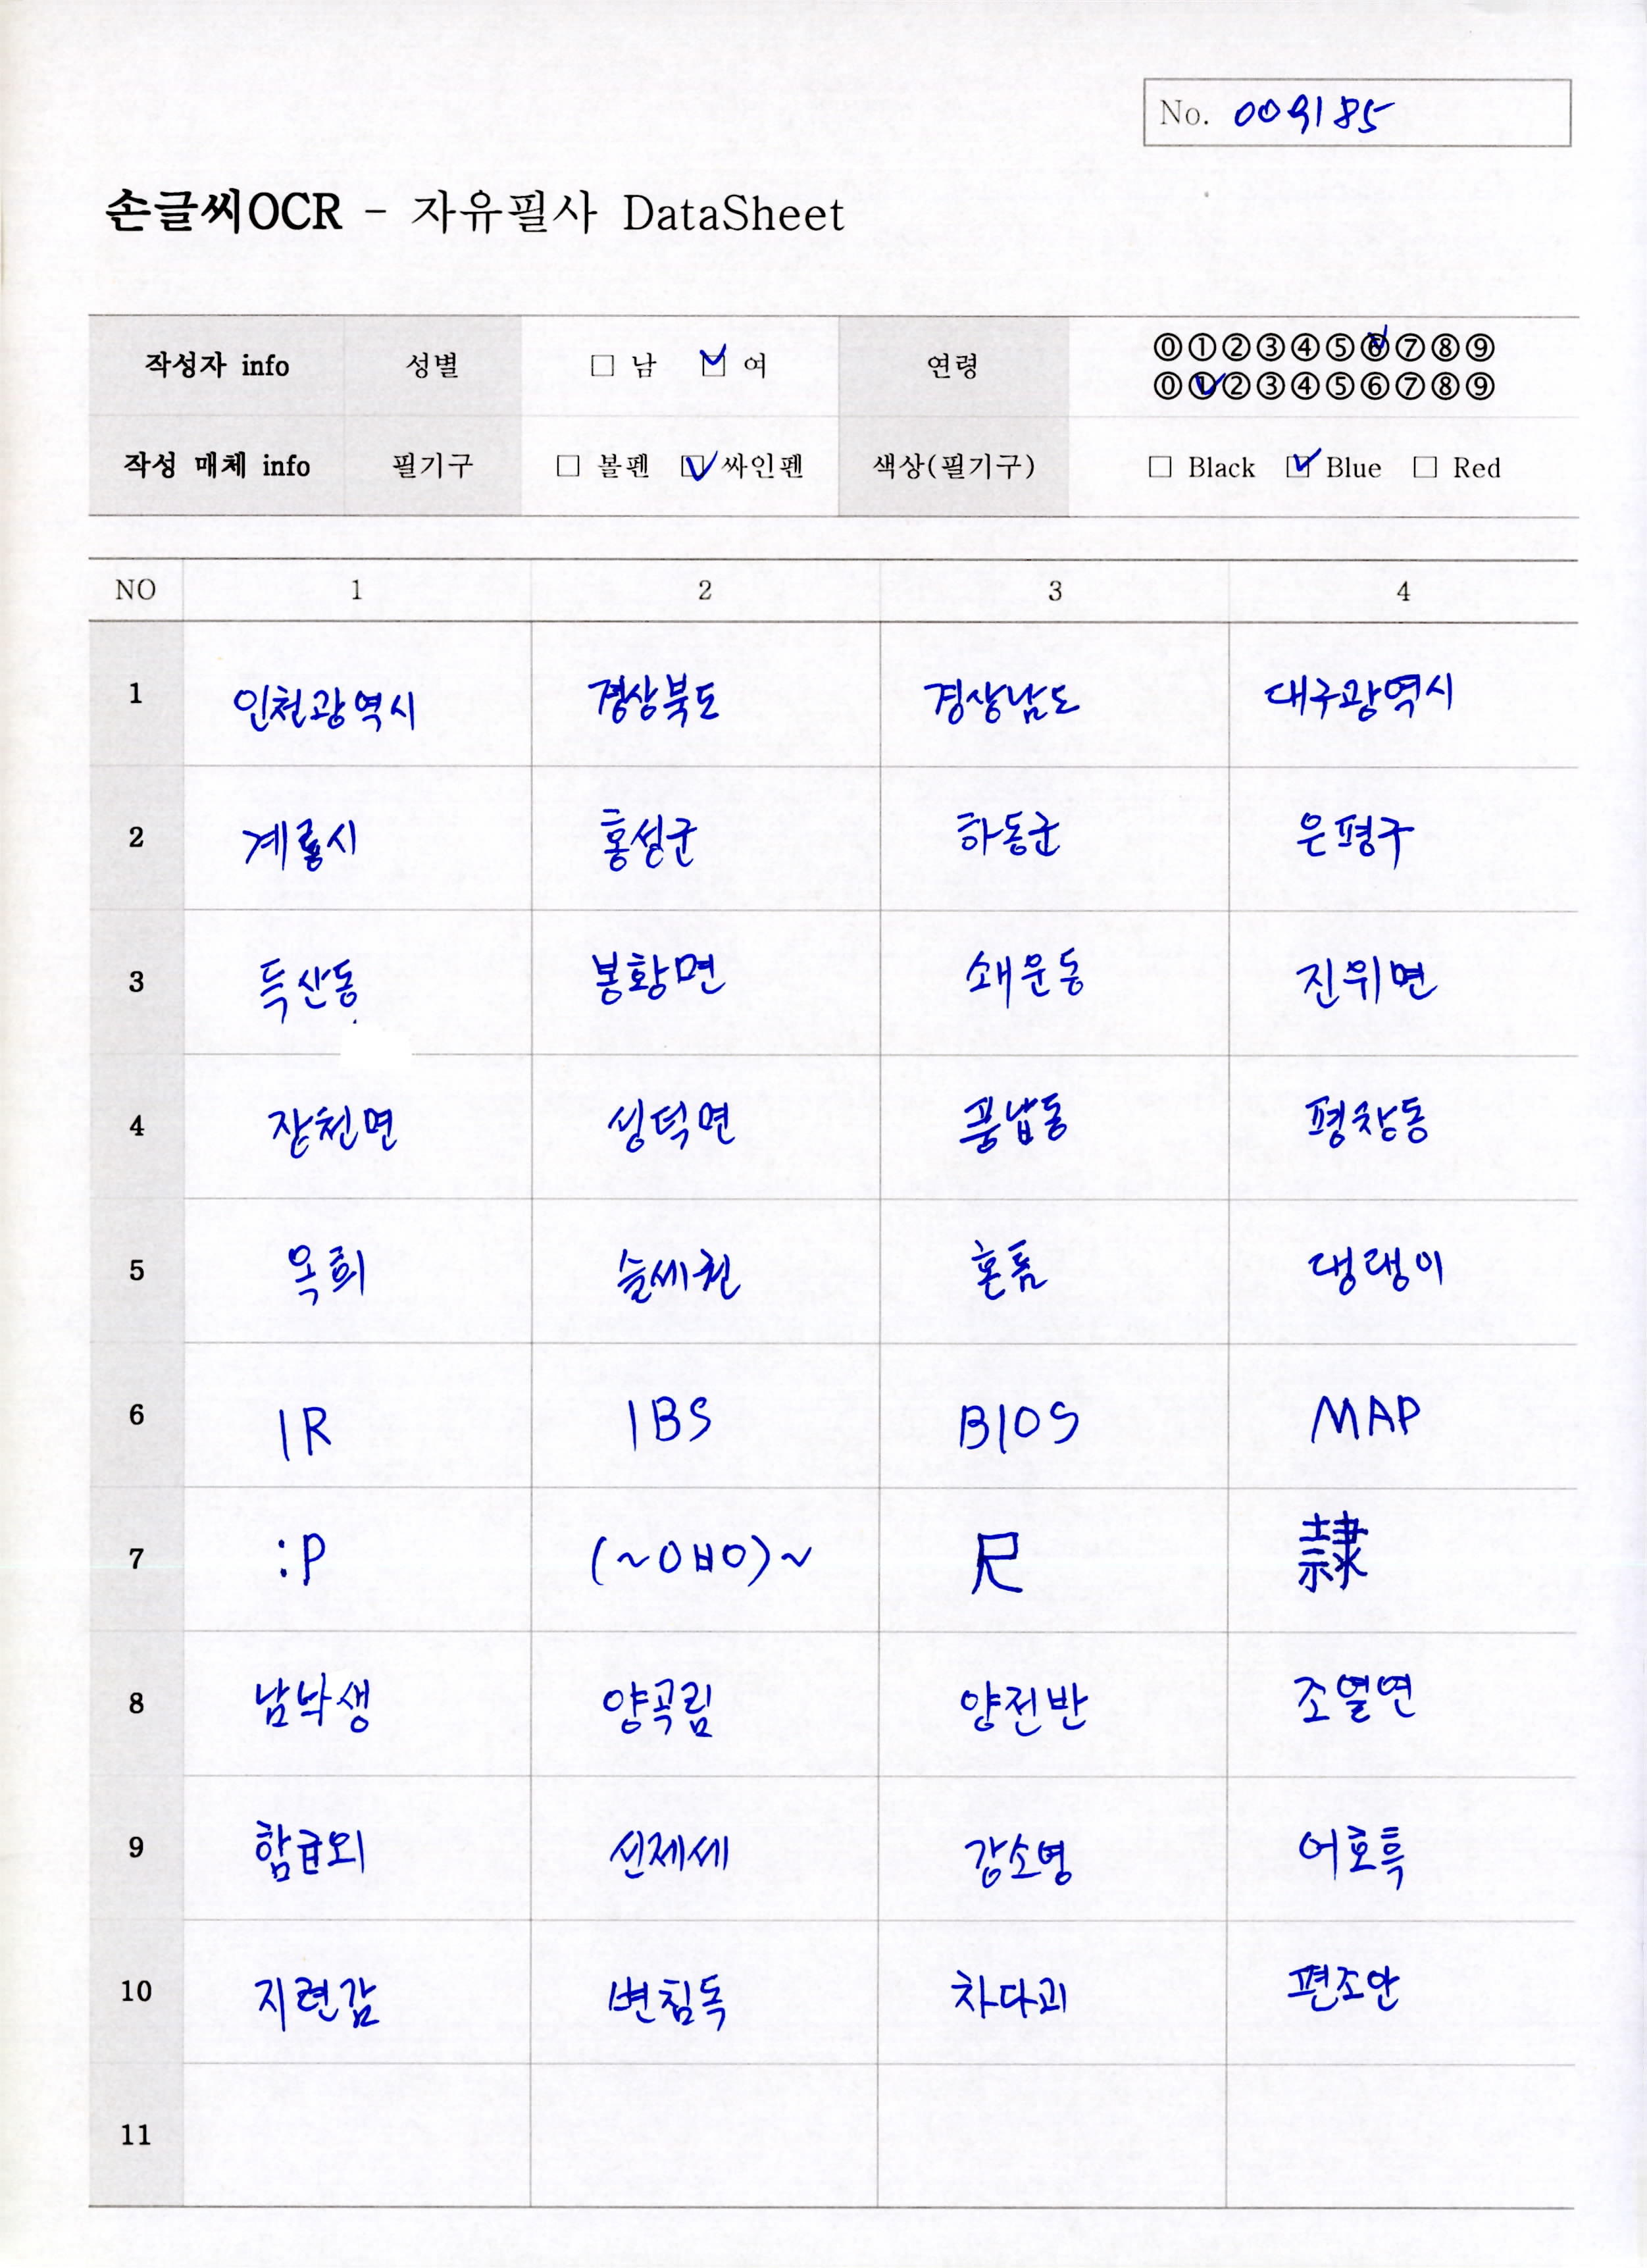 No. 009185
손글씨OCR - 자유필사 DataSheet
작성자 info 성별 □ 남 ☑ 여 연령 ⓪①②③④⑤⑥⑦⑧⑨
⓪①②③④⑤⑥⑦⑧⑨
작성 매체 info 필기구 □ 볼펜 ☑ 싸인펜 색상(필기구) □ Black ☑ Blue □ Red
NO 1 2 3 4
1 인천광역시 경상북도 경상남도 대구광역시
2 계룡시 홍성군 하동군 은평구
3 득산동 봉황면 쇄운동 진위면
4 장천면 성덕면 풍납동 평창동
5 옥희 슬세권 혼틈 댕댕이
6 IR IBS BIOS MAP
7 :P (~ㅇㅂㅇ)~ 尺 隷
8 남낙생 양곡림 양전반 조열연
9 함급외 신제세 강소영 어호흑
10 지련감 변침독 차다괴 편조안
11